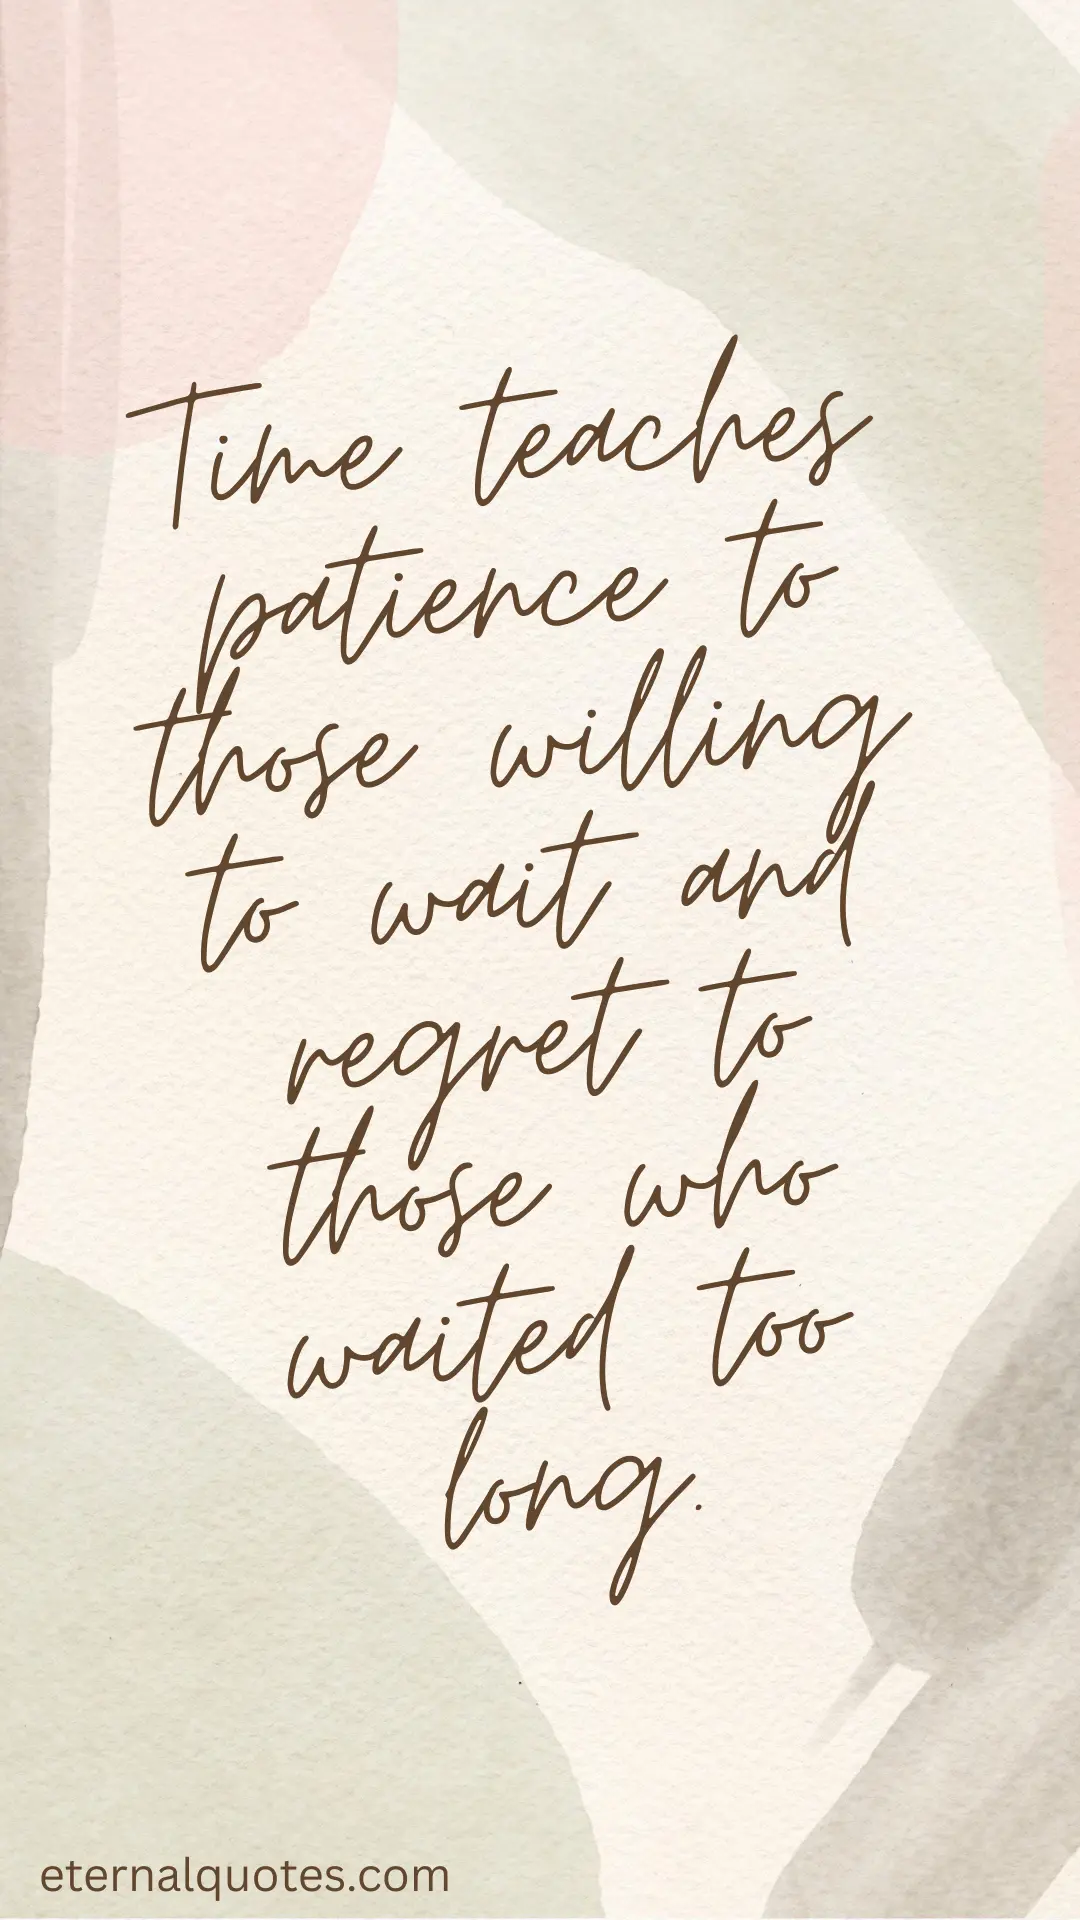 Time teaches
patience to
those willing
to wait and
regret to
those who
waited too
long.
eternalquotes.com